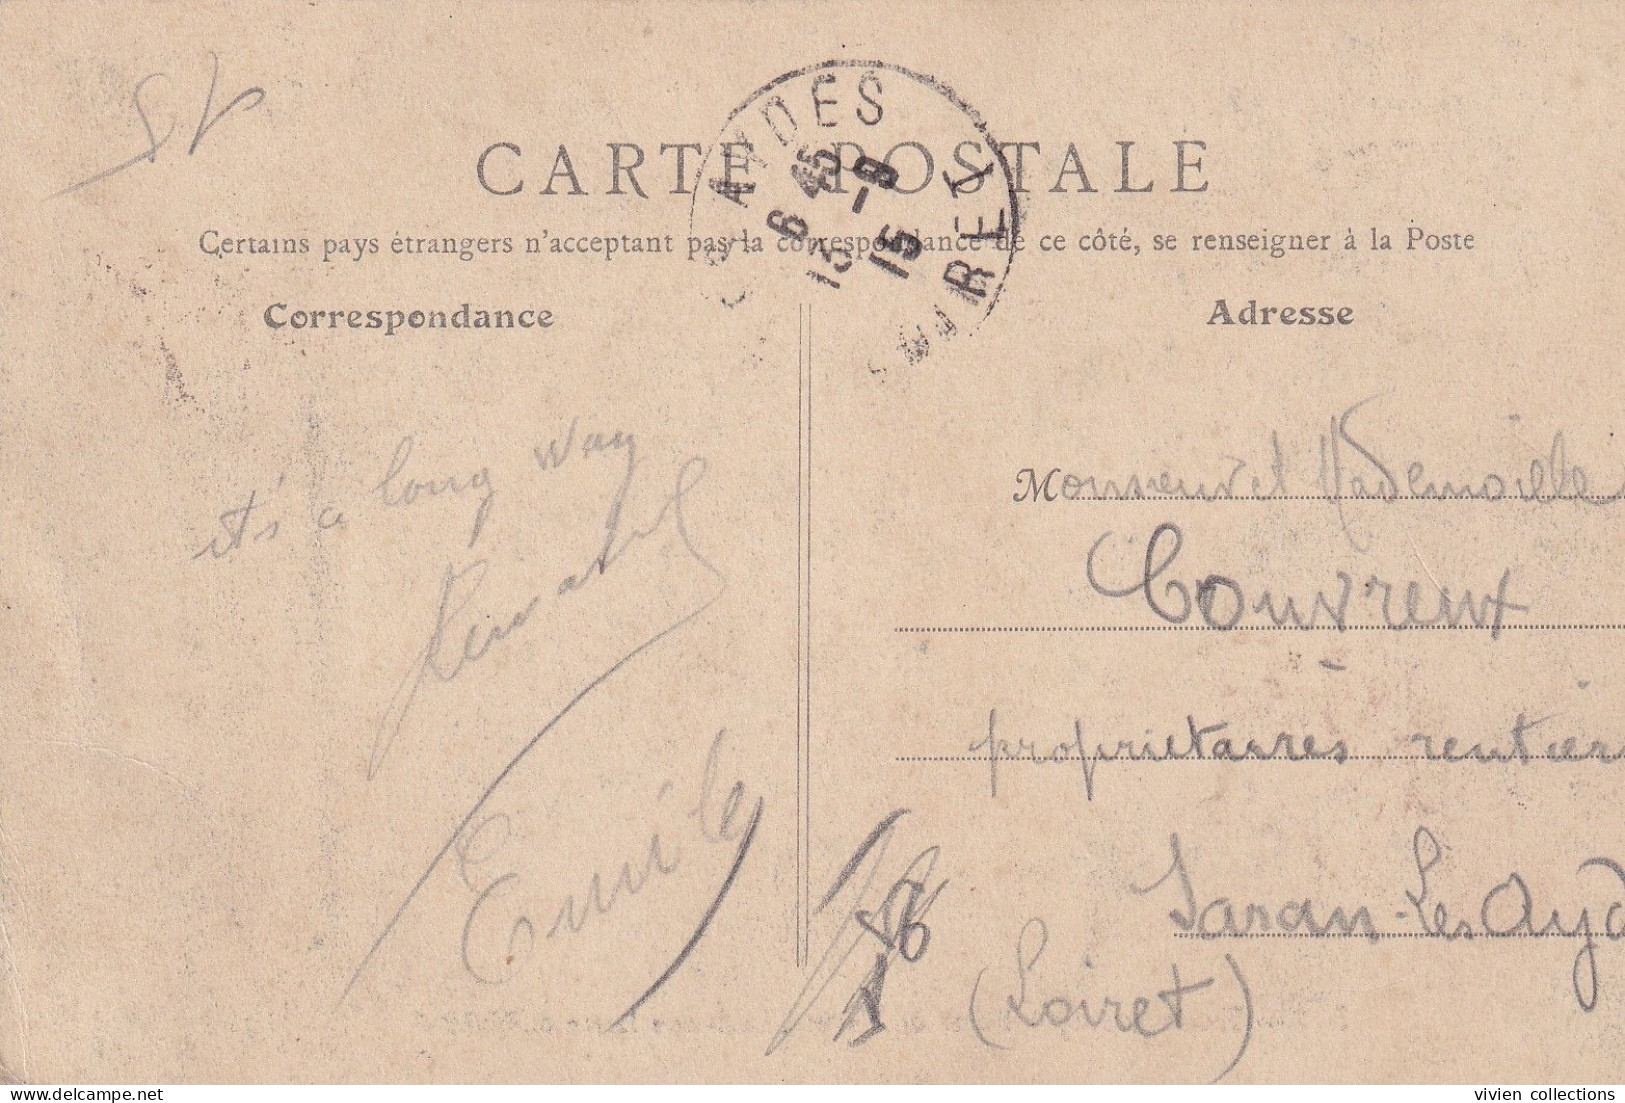 CARTE POSTALE
Certains pays étrangers n'acceptant pas la correspondance de ce côté, se renseigner à la Poste
Correspondance
Adresse
AYDES
6 45
13 -9
15
LOIRET
it's a long way
Emile
Monsieur et Mademoiselle
Couvreux
-
propriétaires rentiers
Saran-Les Ayd
(Loiret)
vivien collections